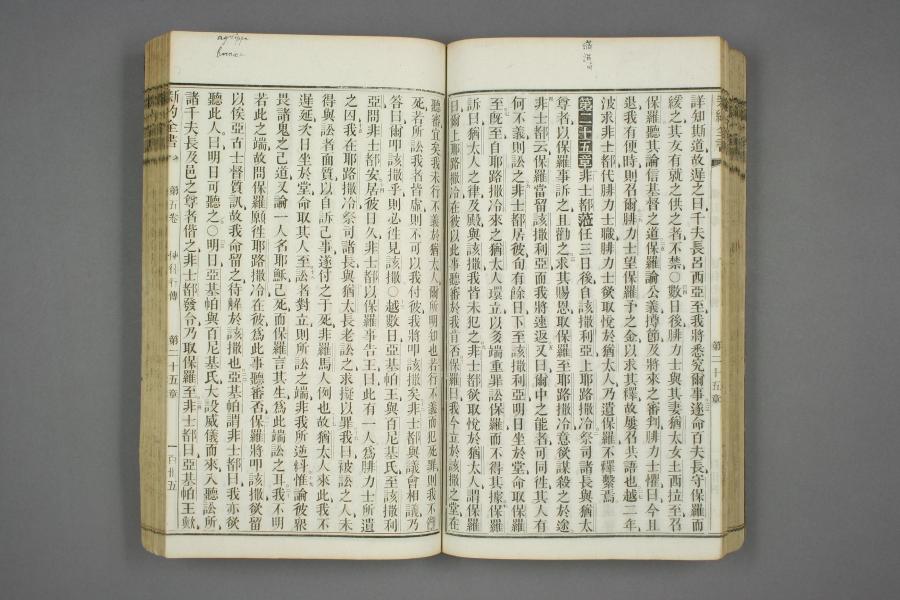 詳知斯道故遲之曰千夫長呂西亞至我將悉究爾事遂命百夫長守保羅而
緩之其友有就之供之者不禁〇數日後腓力士與其妻猶太女土西拉至召
保羅聽其論信基督之道保羅論公義撙節及將來之審判腓力士懼曰今且
退我有便時則召爾腓力士望保羅予之金以求其釋故屢召共語也越二年
波求非士都代腓力士職腓力士欲取悅於猶太人乃遺保羅不釋繫焉
第二十五章非士都蒞任三日後自該撒利亞上耶路撒冷祭司諸長與猶太
尊者以保羅事訴之且勸之求其賜恩取保羅至耶路撒冷意欲謀殺之於途
非士都云保羅當留該撒利亞而我將速返又曰爾中之能者可同往其人有
何不義則訟之非士都居彼旬有餘日下至該撒利亞明日坐於堂命取保羅
至旣至自耶路撒冷來之猶太人環立以多端重罪訟保羅而不得其據保羅
訴曰猶太人之律及殿與該撒我皆未犯之非士都欲取悅於猶太人謂保羅
曰爾上耶路撒冷在彼以此事聽審於我肯否保羅曰我今立於該撒之堂在
新約全書
第二十五章
聽審宜矣我未行不義於猶太人爾所明知也若行不義而犯死罪則我不辭
死若所訟我者皆虛則不可以我付彼我將叩該撒矣非士都與議會相議乃
答曰爾叩該撒乎則必往見該撒〇越數日亞基帕王與百尼基氏至該撒利
亞問非士都安居彼日久非士都以保羅事告王曰此有一人爲腓力士所遺
之囚我在耶路撒冷祭司諸長與猶太長老訟之求擬以罪我曰被訟之人未
得與訟者面質以自訴己事遂付之于死非羅馬人例也故猶太人來此我不
遲延次日坐於堂命取其人至訟者對立則所訟之端非我所逆料惟論彼親
畏諸鬼之己道又論一人名耶穌已死而保羅言其生爲此端訟之耳我不明
若此之端故問保羅願往耶路撒冷在彼爲此事聽審否保羅將叩該撒欲留
以俟亞古士督質訊故我命留之待解於該撒也亞基帕謂非士都曰我亦欲
聽此人曰明日可聽之〇明日亞基帕與百尼基氏大設威儀而來入聽訟所
諸千夫長及邑之尊者偕之非士都發令乃取保羅至非士都曰亞基帕王歟
新約全書
第五卷
使徒行傳
第二十五章
一百卅五
agrippa